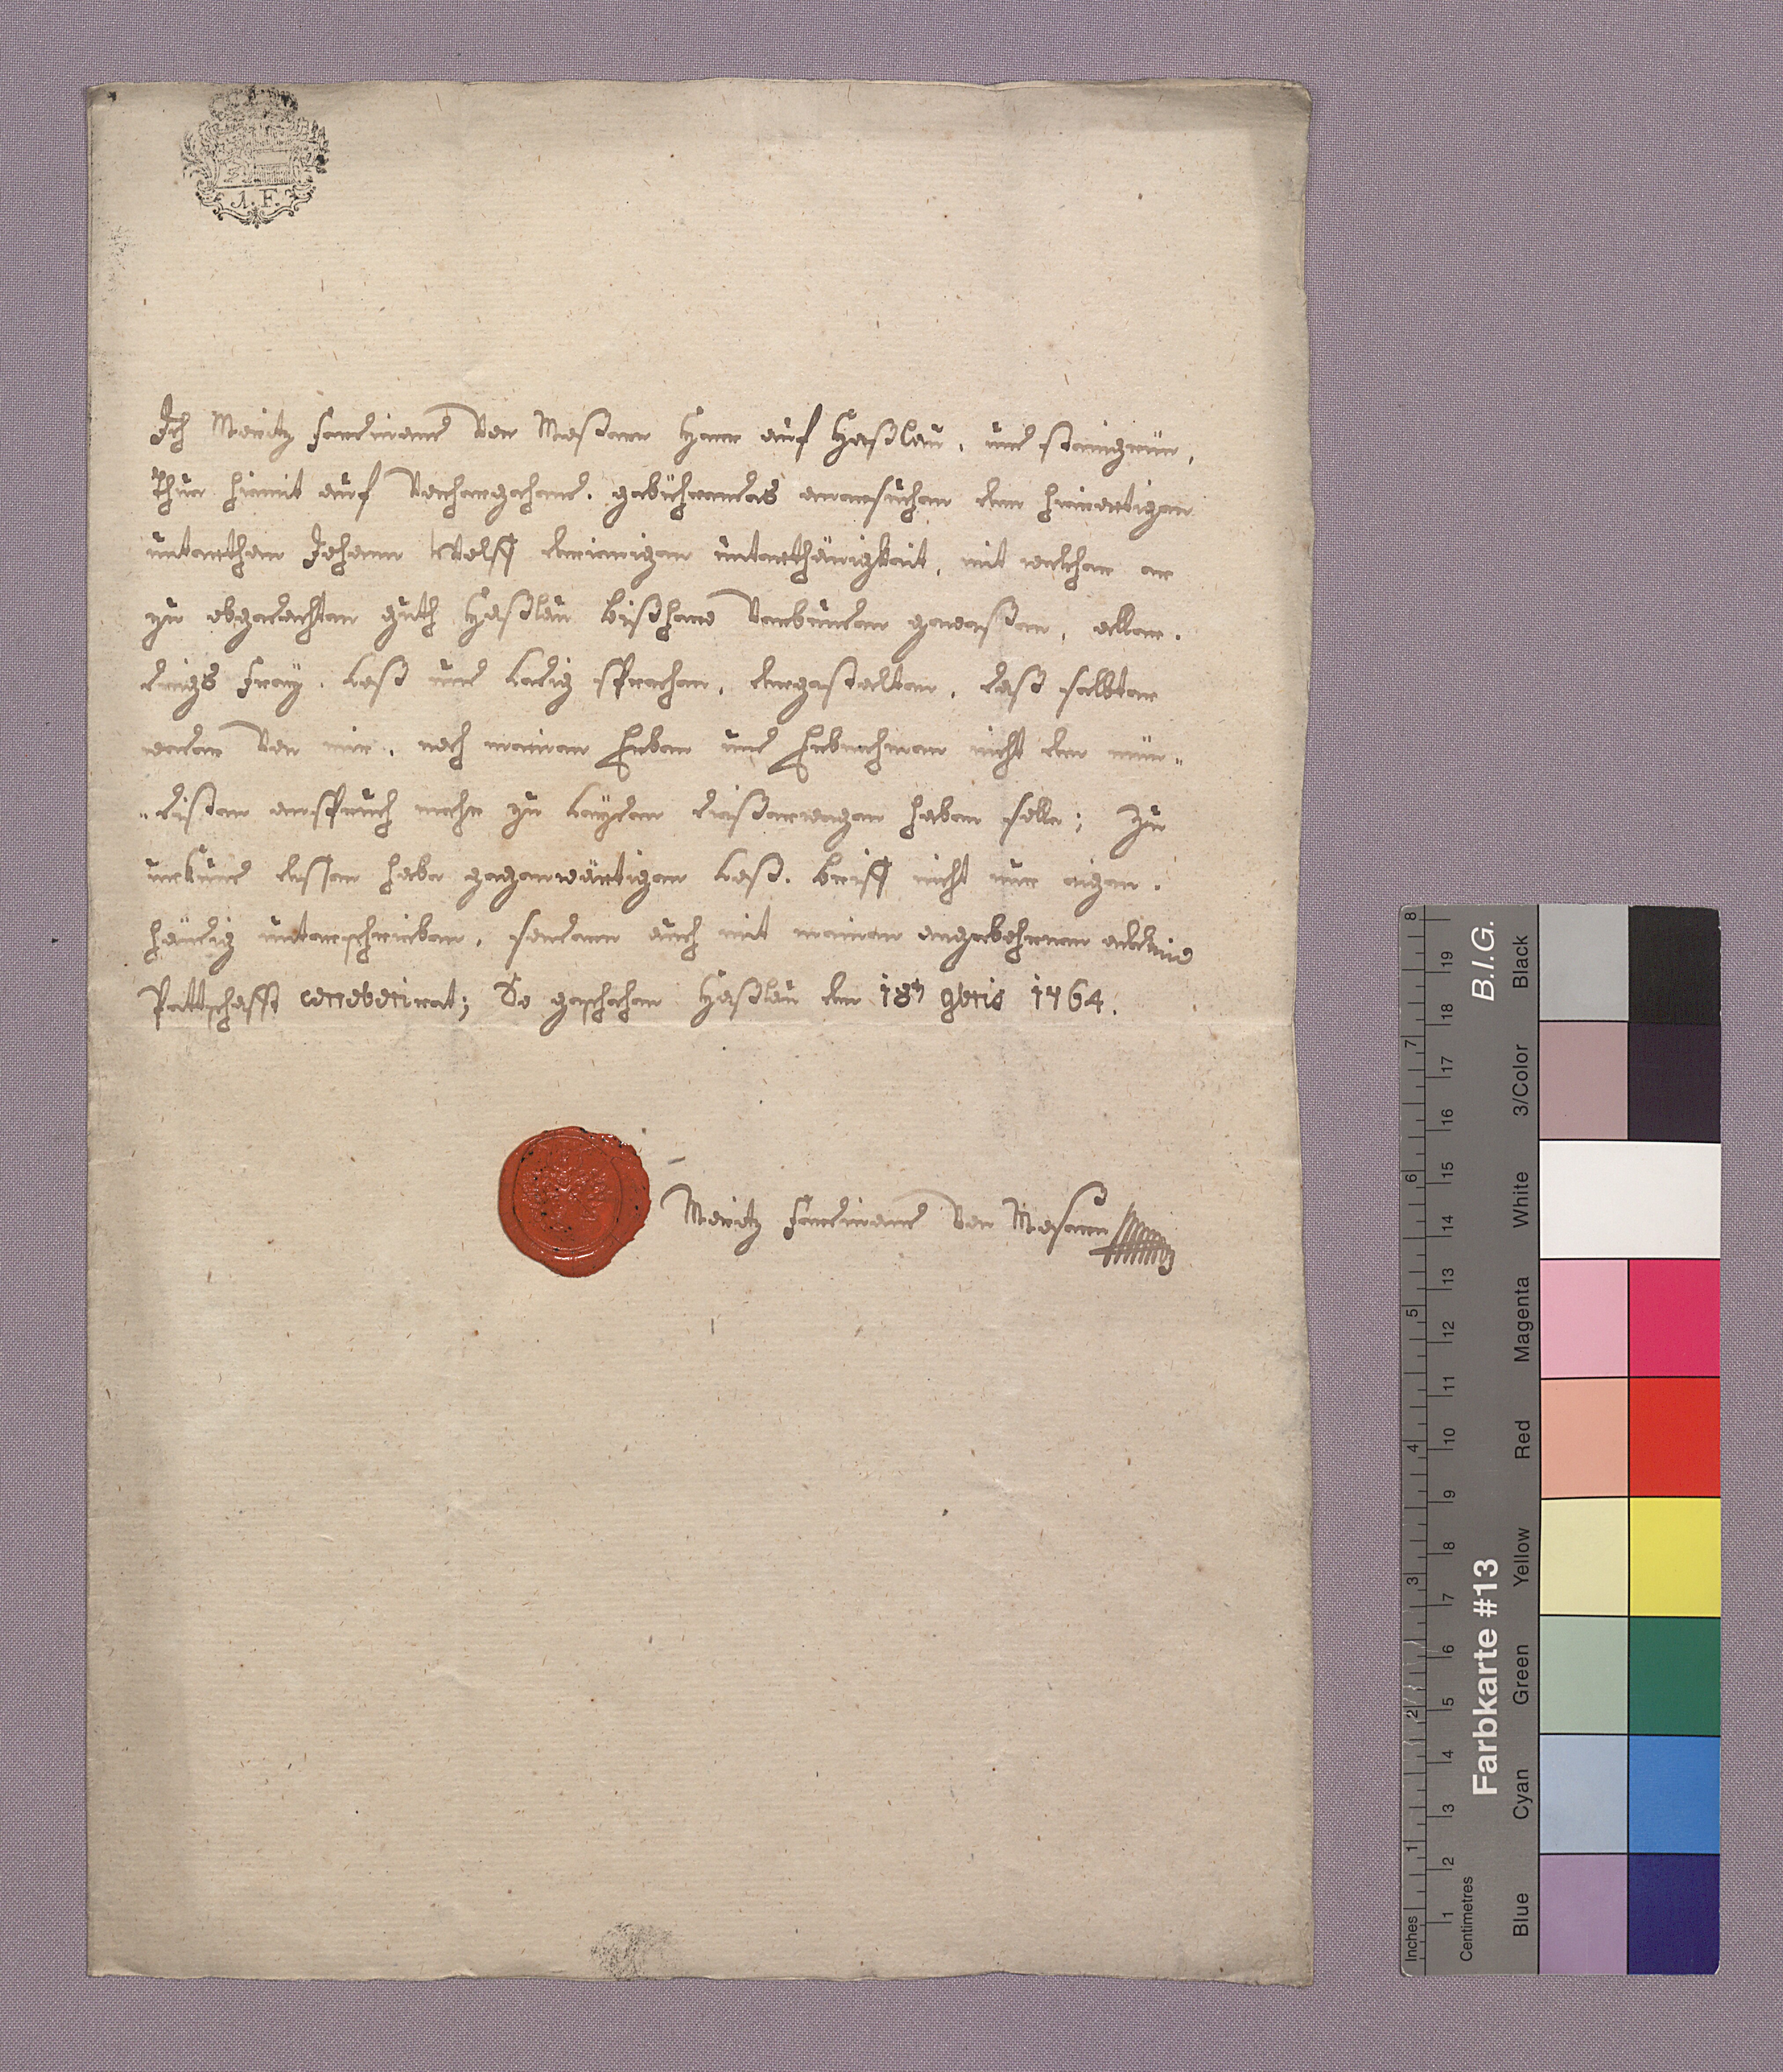 1. F.
Ich Moritz Ferdinand Von Moßern Herr auf Haßlau, und steingrün,
Thue hiemit auf Vorhergehend. gebührendes anersuchen den hierortigen
unterthan Johann Wolff derienigen unterthänigkeit, mit welcher er
zu obgedachten guth Haßlau bißhero Verbunden gewesßen, aller.
dings frey. Loß und Ledig sprechen, dergestalten, daß selbter
weder Von mir, noch meinen Erben und Erbnehmen nicht den mün„
„disten anspruch mehr zu Leyden dießerwegen haben solle; Zu
urkund dessen habe gegenwärtigen Loß. brieff nicht nur eigen.
händig unterschrieben, sondern auch mit meinen angebohrnen
Pettschafft corroborirat; So geschehen Haßlau den 18t 9bris 1764.
Moritz Ferdinand Von Mosern
Inches
Centimetres
1 2 3 4 5 6 7 8
1 2 3 4 5 6 7 8 9 10 11 12 13 14 15 16 17 18 19
Farbkarte #13
B.I.G.
Blue
Cyan
Green
Yellow
Red
Magenta
White
3/Color
Black